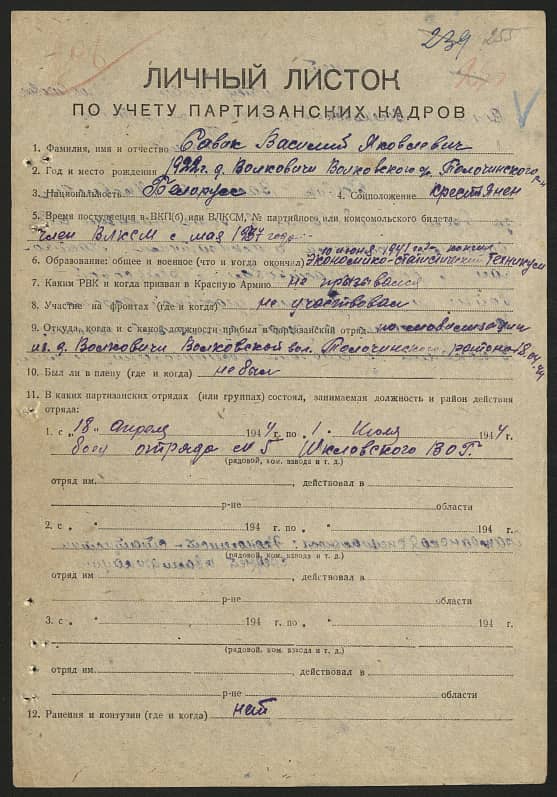 239 255
ЛИЧНЫЙ ЛИСТОК
ПО УЧЕТУ ПАРТИЗАНСКИХ КАДРОВ
1. Фамилия, имя и отчество Савик Василий Яковлевич
2. Год и место рождения 1922 г. д. Волковичи Волковского с/с Толочинского р-н
3. Национальность Белорусс 4. Соцположение крестьянен
5. Время поступления в ВКП(б) или ВЛКСМ, № партийного или комсомольского билета
Член ВЛКСМ с мая 1937 года
10 июня 1941 года
6. Образование: общее и военное (что и когда окончил) Экономико-статистический техникум
7. Каким РВК и когда призван в Красную Армию не призывался
8. Участие на фронтах (где и когда) не участвовал
9. Откуда, когда и с какой должности прибыл в партизанский отряд по мобилизации
из д. Волковичи Волковской вол. Толочинского района 18.04.44
10. Был ли в плену (где и когда) не был
11. В каких партизанских отрядах (или группах) состоял, занимаемая должность и район действия
отряда:
1. с „18" апреля 1944 г. по „1" Июля 1944 г.
боец отряда №5 Шкловского ВОГ.
(рядовой, ком. взвода и т. д.)
отряд им. , действовал в
р-не области
2. с „ " 194 г. по „ " 194 г.
(рядовой, ком. взвода и т. д.)
отряд им. , действовал в
р-не области
3. с „ " 194 г. по „ " 194 г.
(рядовой, ком. взвода и т. д.)
отряд им. , действовал в
р-не области
12. Ранения и контузии (где и когда) нет